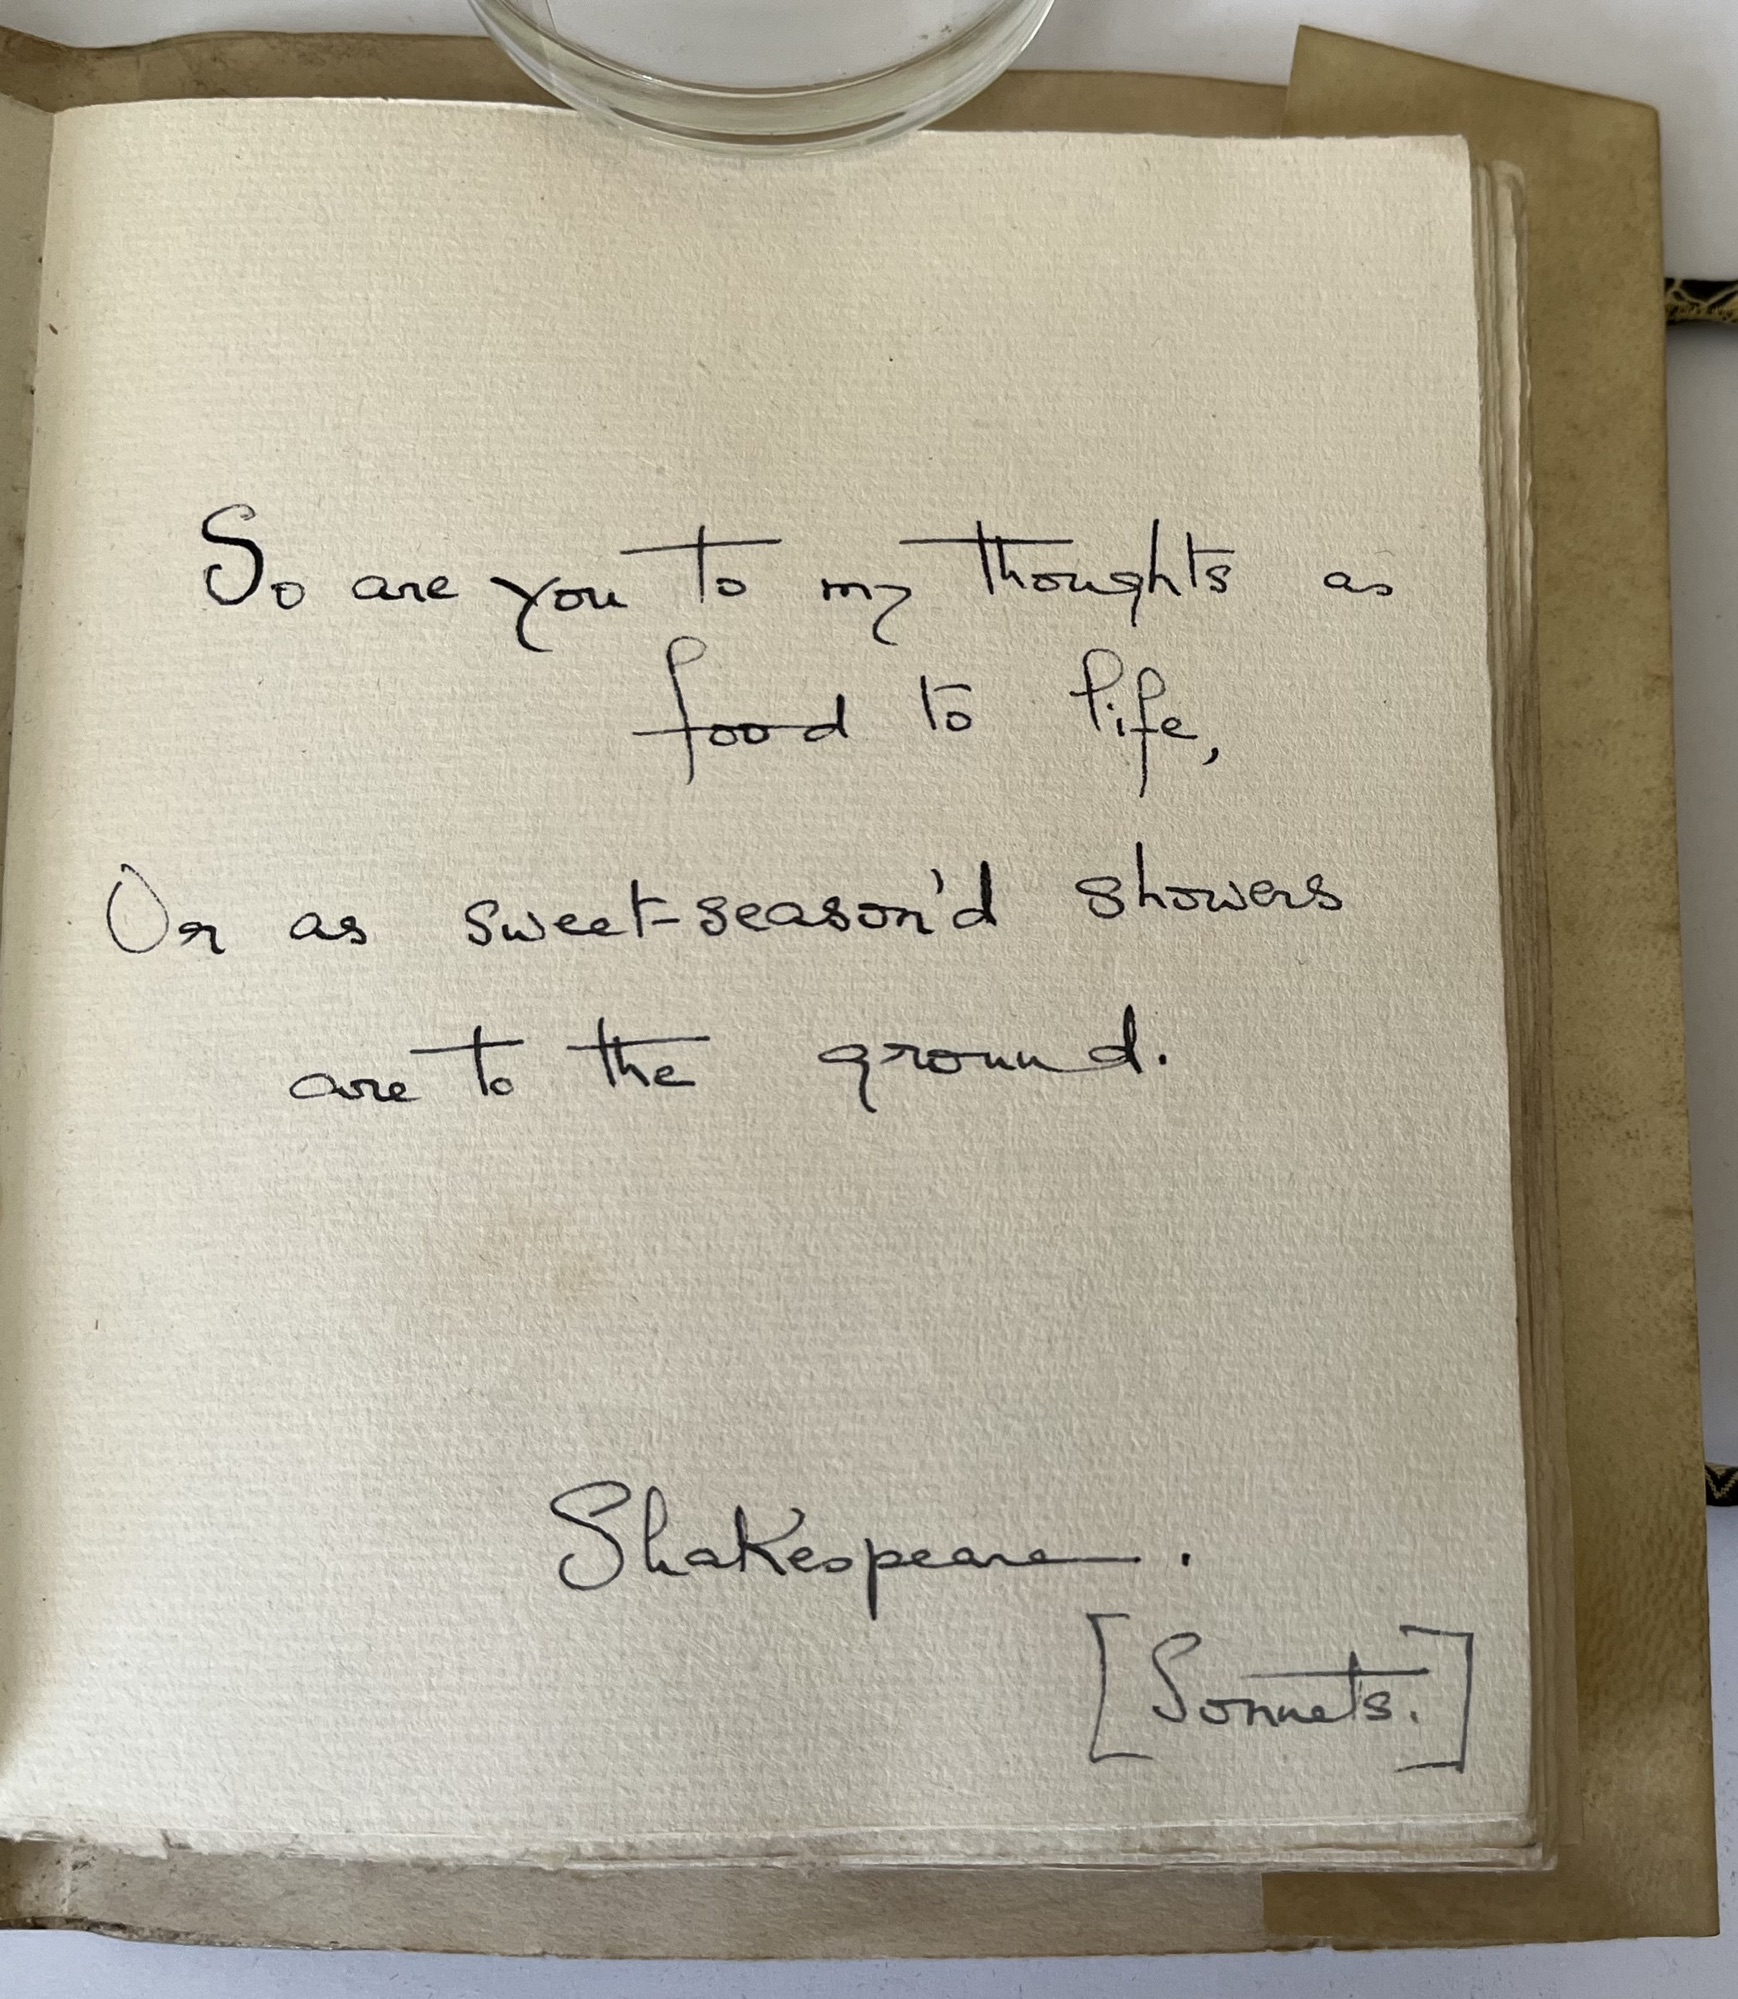 So are you to my thoughts as
food to life,
Or as sweet-season'd showers
are to the ground.
Shakespeare.
[Sonnets.]